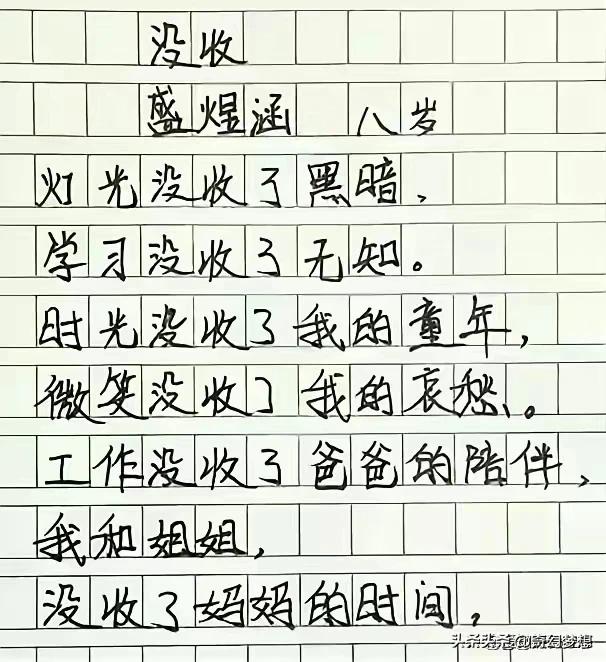 没收
盛煜涵 八岁
灯光没收了黑暗、
学习没收了无知。
时光没收了我的童年,
微笑没收了我的哀愁。
工作没收了爸爸的陪伴、
我和姐姐,
没收了妈妈的时间,
头条